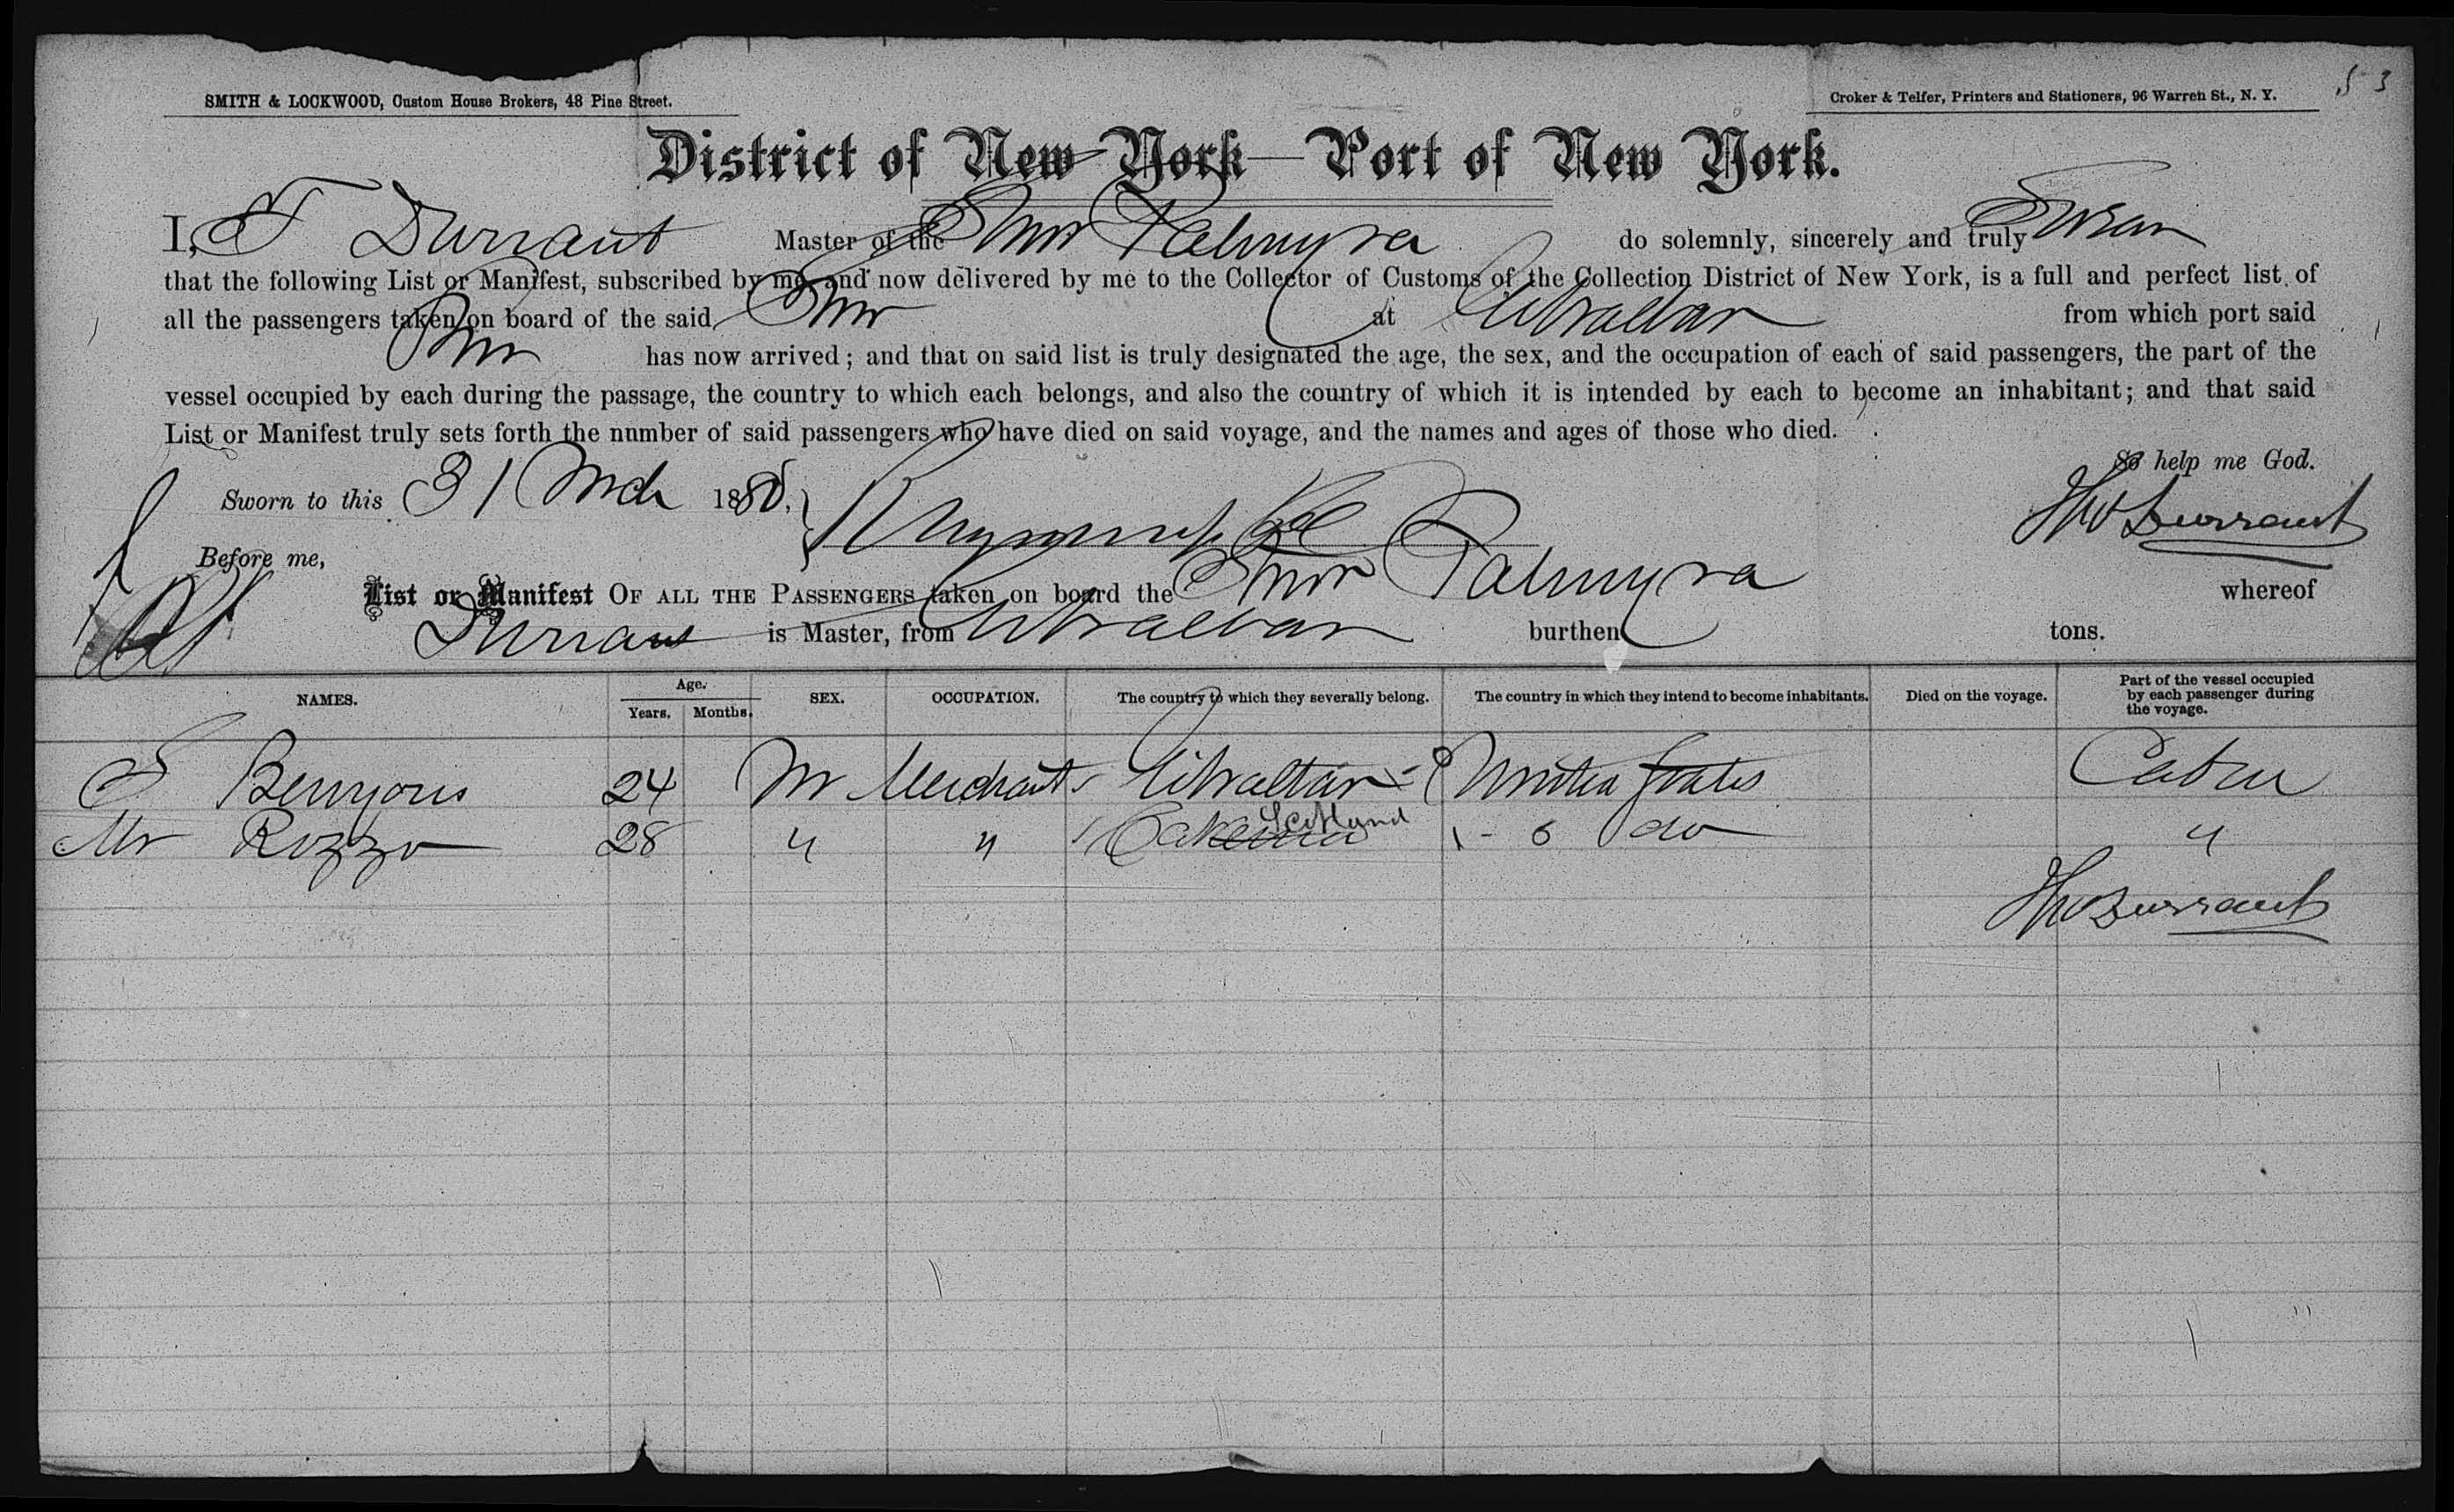 53
SMITH & LOCKWOOD, Custom House Brokers, 48 Pine Street.
Croker & Telfer, Printers and Stationers, 96 Warren St., N. Y.
District of New York—Port of New York.
I, T Durrant Master of the Smr Palmyra do solemnly, sincerely and truly Swear
that the following List or Manifest, subscribed by me, and now delivered by me to the Collector of Customs of the Collection District of New York, is a full and perfect list of
all the passengers taken on board of the said Smr at Gibraltar from which port said
Smr has now arrived; and that on said list is truly designated the age, the sex, and the occupation of each of said passengers, the part of the
vessel occupied by each during the passage, the country to which each belongs, and also the country of which it is intended by each to become an inhabitant; and that said
List or Manifest truly sets forth the number of said passengers who have died on said voyage, and the names and ages of those who died.
So help me God.
Sworn to this 31 Mch 1880,
Durrant
Before me,
List or Manifest OF ALL THE PASSENGERS taken on board the Smr Palmyra whereof
Durrant is Master, from Gibraltar burthen tons.
NAMES. Age. Years. Months. SEX. OCCUPATION. The country to which they severally belong. The country in which they intend to become inhabitants. Died on the voyage. Part of the vessel occupied by each passenger during the voyage.
S Benyons 24 M Merchant Gibraltar United States Cabin
Mr Rozzo 28 " " Scotland do "
Durrant